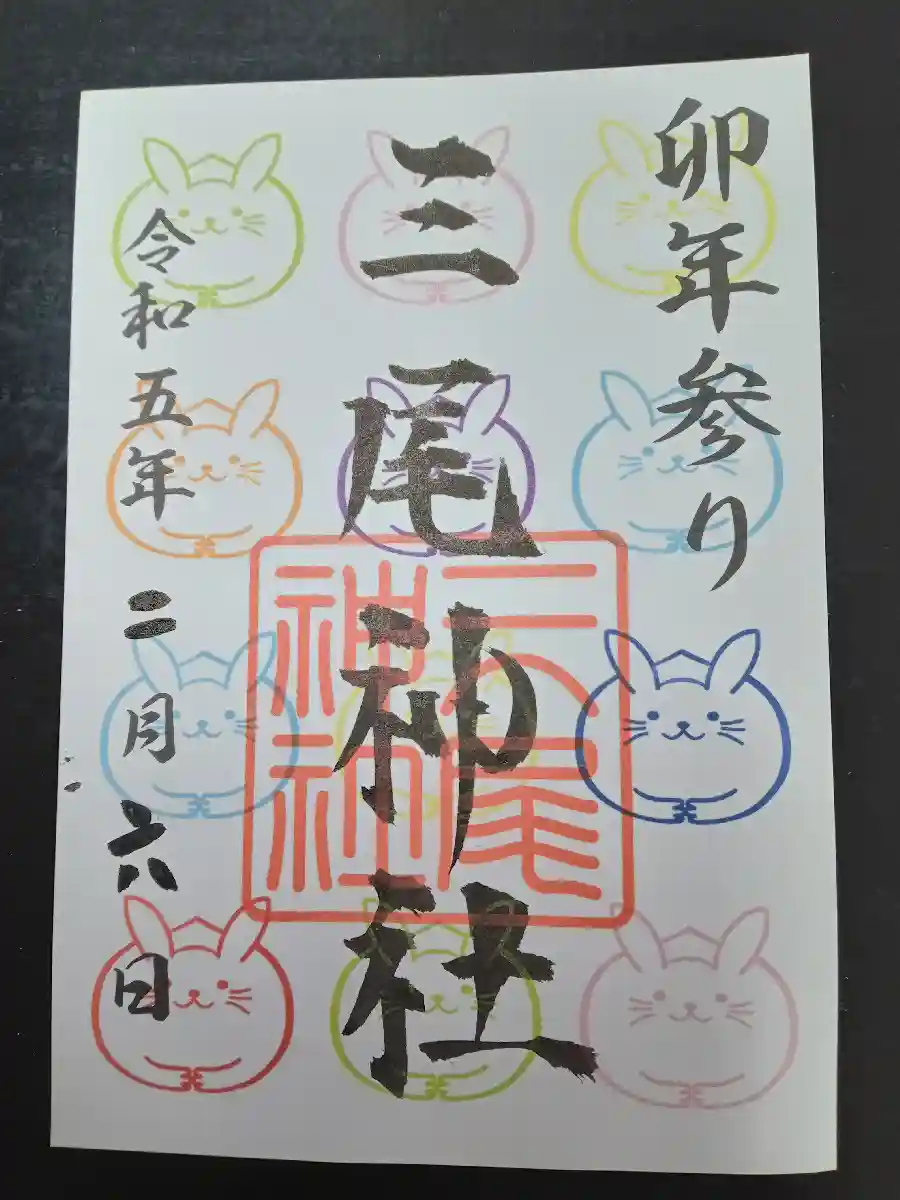 卯年参り
三尾神社
三尾神社
令和五年二月六日